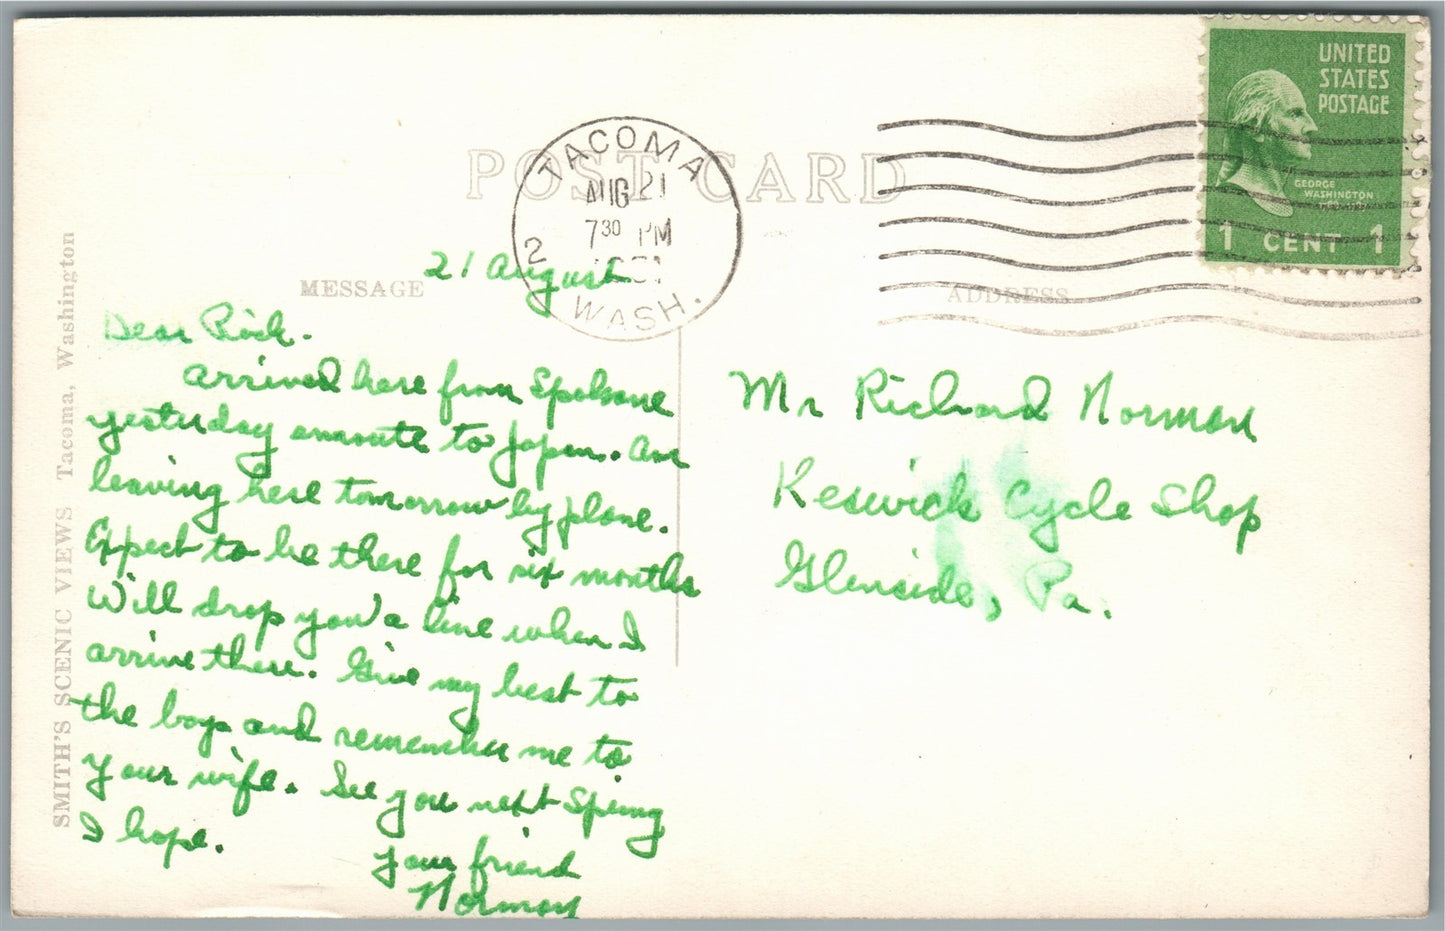 POST CARD
TACOMA
AUG 21
7 30 PM
2
WASH.
UNITED
STATES
POSTAGE
GEORGE
WASHINGTON
1 CENT 1
MESSAGE
ADDRESS
SMITH'S SCENIC VIEWS Tacoma, Washington
21 August
Dear Rich.
Arrived here from Spokane
yesterday enroute to Japan. Am
leaving here tomorrow by plane.
Expect to be there for six months
Will drop you a line when I
arrive there. Give my best to
the boys and remember me to
your wife. See you next Spring
I hope.
Your friend
Norman
Mr Richard Norman
Keswick Cycle Shop
Glenside, Pa.